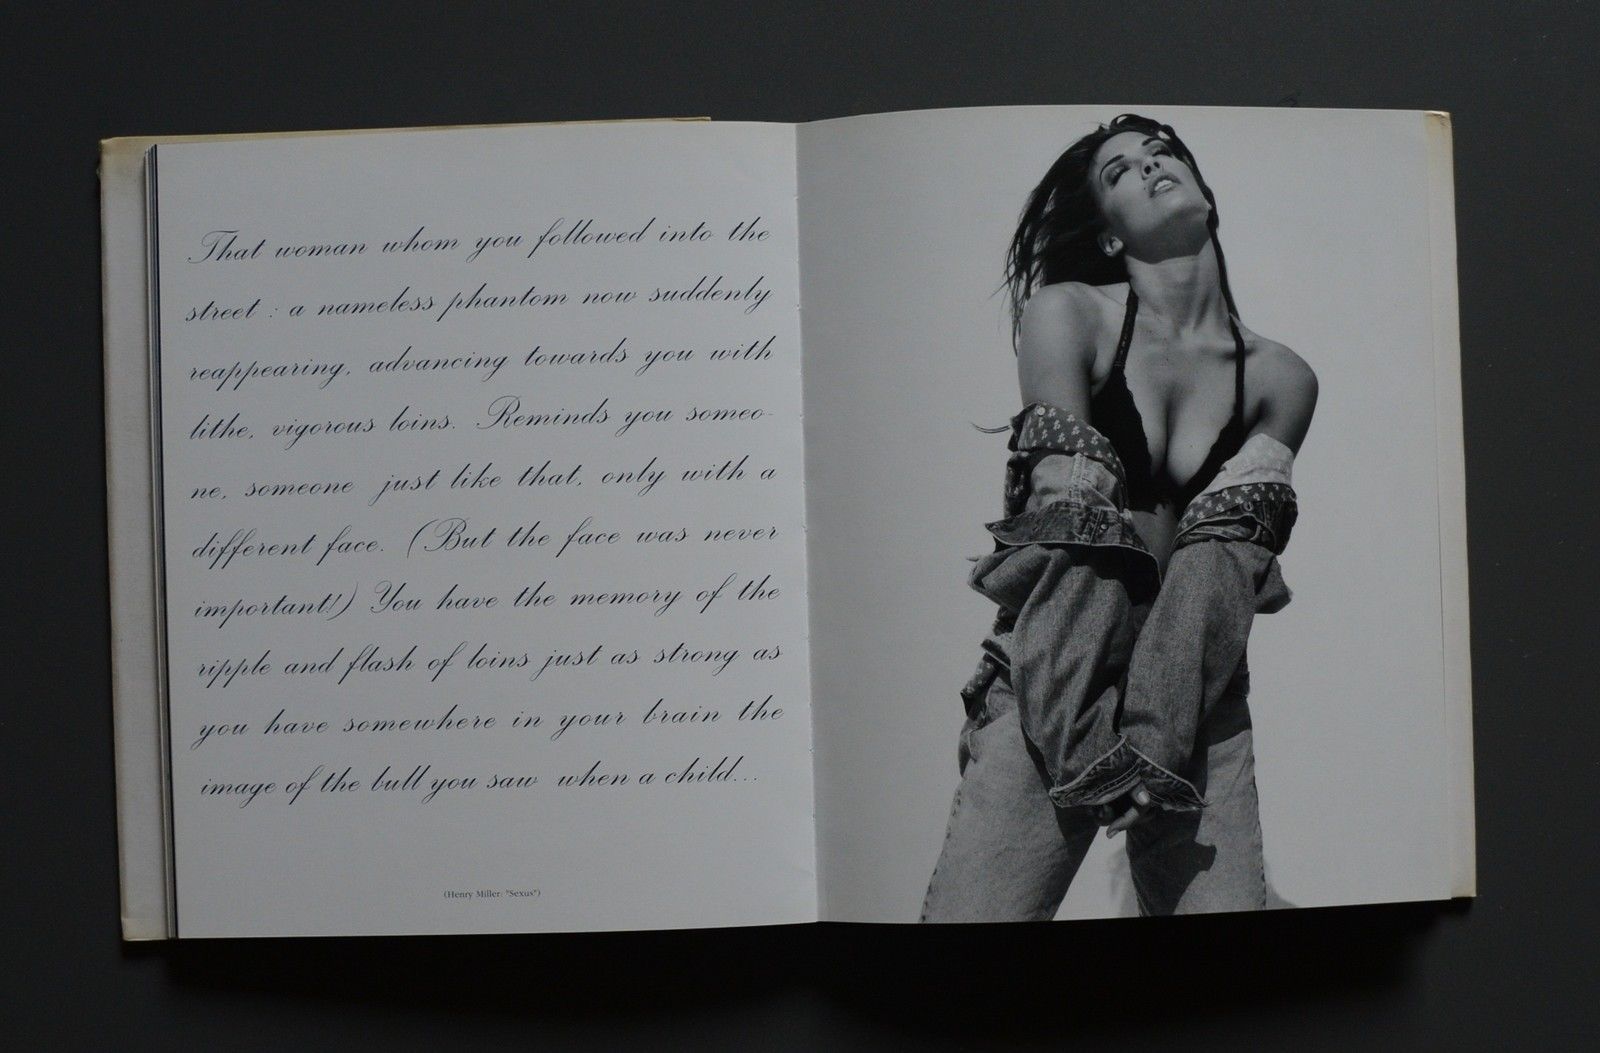 That woman whom you followed into the
street : a nameless phantom now suddenly
reappearing, advancing towards you with
lithe, vigorous loins. Reminds you someo-
ne, someone just like that, only with a
different face. (But the face was never
important!) You have the memory of the
ripple and flash of loins just as strong as
you have somewhere in your brain the
image of the bull you saw when a child...
(Henry Miller: "Sexus")